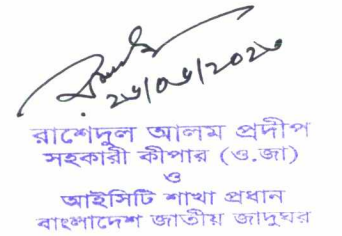 ২৬/০৫/২০২০
রাশেদুল আলম প্রদীপ
সহকারী কীপার (ও.জা)
ও
আইসিটি শাখা প্রধান
বাংলাদেশ জাতীয় জাদুঘর